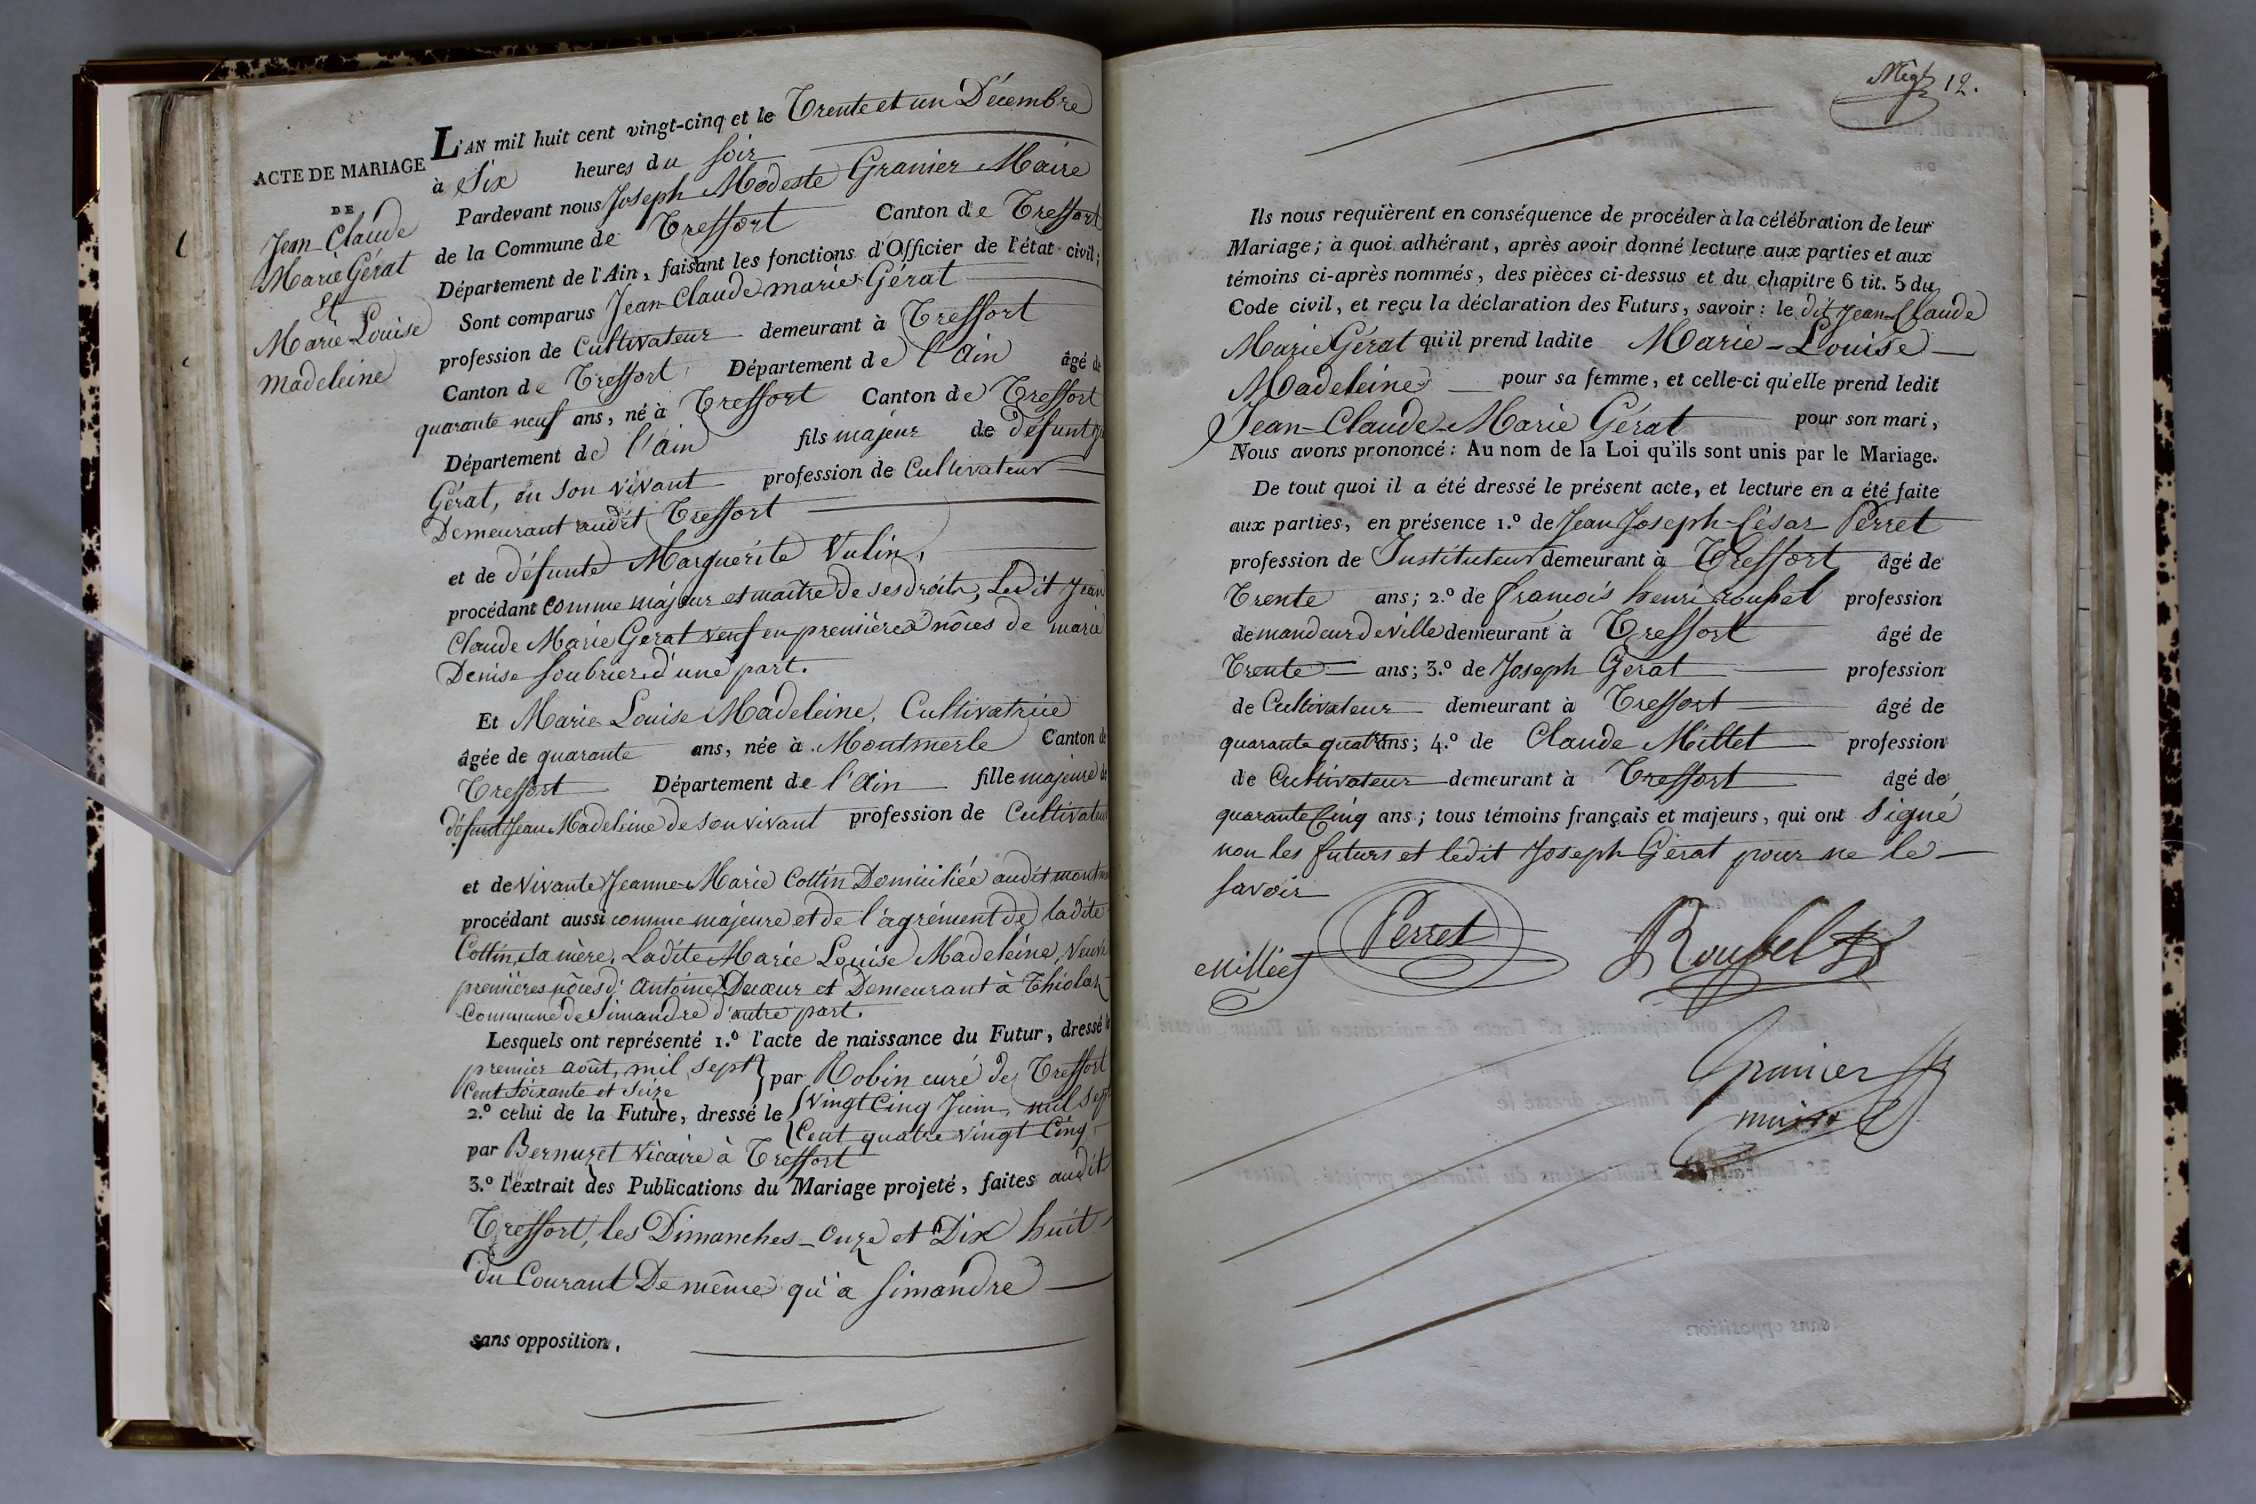 ACTE DE MARIAGE
DE
Jean-Claude
Marie Gérat
Et
Marie-Louise
Madeleine
L'AN mil huit cent vingt-cinq et le Trente et un Décembre
à Six heures du soir
Pardevant nous Joseph Modeste Granier Maire
de la Commune de Treffort Canton de Treffort
Département de l'Ain, faisant les fonctions d'Officier de l'état civil;
Sont comparus Jean-Claude marie Gérat
profession de Cultivateur demeurant à Treffort
Canton de Treffort Département de l'Ain âgé de
quarante neuf ans, né à Treffort Canton de Treffort
Département de l'ain fils majeur de défunt
Gérat, en son vivant profession de Cultivateur
Demeurant audit Treffort
et de défunte Marguerite Vulin,
procédant comme majeur et maître de ses droits, Ledit Jean
Claude Marie Gerat veuf en premières nôces de marie
Denise Soubrier d'une part.
Et Marie Louise Madeleine, Cultivatrice
âgée de quarante ans, née à Montmerle Canton de
Treffort Département de l'Ain fille majeure de
défunt Jean Madeleine de son vivant profession de Cultivateur
et de vivante Jeanne-Marie Collin Domiciliée audit
procédant aussi comme majeure et de l'agrément de ladite
Collin, sa mère. Ladite Marie Louise Madeleine, Veuve
premières nôces d'Antoine Ducœur et Demeurant à Thiolas
Commune de Simandre d'autre part.
Lesquels ont représenté 1.º l'acte de naissance du Futur, dressé le
premier août, mil sept
Cent soixante et seize
par Robin curé de Treffort
2.º celui de la Future, dressé le vingt Cinq Juin, mil sept
Cent quatre vingt Cinq
par Bernuzet Vicaire à Treffort
3.º l'extrait des Publications du Mariage projeté, faites audit
Treffort, les Dimanches Onze et Dix huit
du Courant De même qu'à Simandre
sans opposition.
12.
Ils nous requièrent en conséquence de procéder à la célébration de leur
Mariage; à quoi adhérant, après avoir donné lecture aux parties et aux
témoins ci-après nommés, des pièces ci-dessus et du chapitre 6 tit. 5 du
Code civil, et reçu la déclaration des Futurs, savoir: le dit Jean-Claude
Marie Gérat qu'il prend ladite Marie-Louise
Madeleine pour sa femme, et celle-ci qu'elle prend ledit
Jean-Claude-Marie Gérat pour son mari,
Nous avons prononcé: Au nom de la Loi qu'ils sont unis par le Mariage.
De tout quoi il a été dressé le présent acte, et lecture en a été faite
aux parties, en présence 1.º de Jean Joseph-César Perret
profession de Instituteur demeurant à Treffort âgé de
Trente ans; 2.º de françois henri roussel profession
de mandeur de ville demeurant à Treffort âgé de
Trente ans; 3.º de Joseph Gerat profession
de Cultivateur demeurant à Treffort âgé de
quarante quatre ans; 4.º de Claude Millet profession
de Cultivateur demeurant à Treffort âgé de
quarante Cinq ans; tous témoins français et majeurs, qui ont signé
non les futurs et ledit Joseph Gérat pour ne le
savoir
Millet
Perret
Roussel
Granier
maire